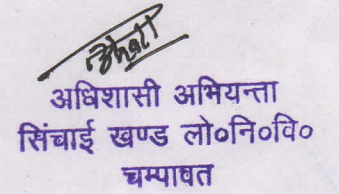 अधिशासी अभियन्ता
सिंचाई खण्ड लो०नि०वि०
चम्पावत